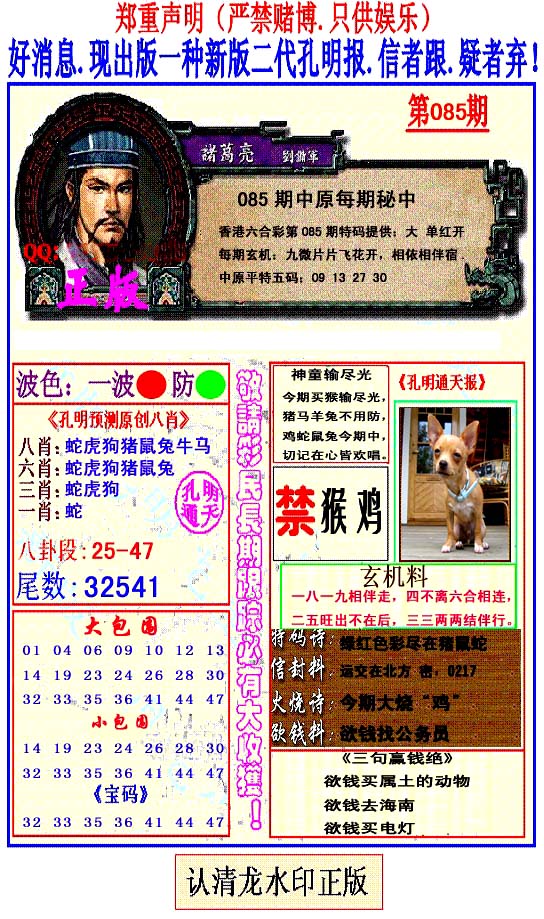 郑重声明（严禁赌博.只供娱乐）
好消息.现出版一种新版二代孔明报.信者跟.疑者弃！
第085期
諸葛亮
085 期中原每期秘中
香港六合彩第 085 期特码提供：大 单红开
每期玄机：九微片片飞花开，相依相伴宿.
中原平特五码：09 13 27 30
QQ:
正版
波色：一波 防
《孔明预测原创八肖》
八肖:蛇虎狗猪鼠兔牛马
六肖:蛇虎狗猪鼠兔
三肖:蛇虎狗
一肖:蛇
孔明
通天
八卦段:25-47
尾数:32541
大包围
01 04 06 09 10 12 13
14 19 23 24 26 28 30
32 33 35 36 41 44 47
小包围
14 19 23 24 26 28 30
32 33 35 36 41 44 47
《宝码》
32 33 35 36 41 44 47
敬請彩民長期跟踪必有大收獲！
神童输尽光
今期买猴输尽光，
猪马羊兔不用防，
鸡蛇鼠兔今期中，
切记在心皆欢唱。
《孔明通天报》
禁猴鸡
玄机料
一八一九相伴走，四不离六合相连，
二五旺出不在后，三三两两结伴行。
特码诗：绿红色彩尽在猪鼠蛇
信封料：运交在北方 密，0217
火烧诗：今期大烧“鸡”
欲钱料：欲钱找公务员
《三句赢钱绝》
欲钱买属土的动物
欲钱去海南
欲钱买电灯
认清龙水印正版